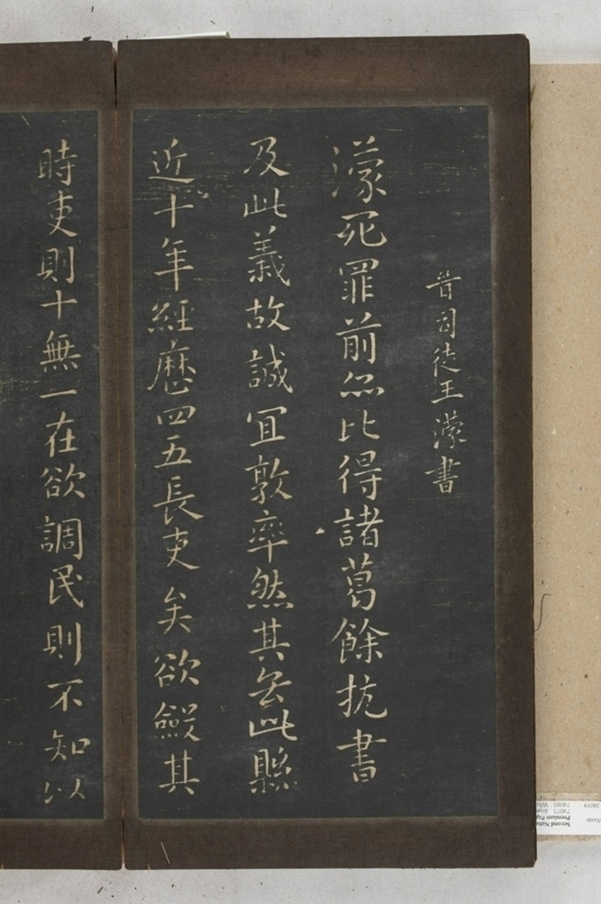 晉司徒王濛書
濛死罪前亦比得諸葛餘杭書
及此義故誠宜敦率然其去此縣
近十年經歷四五長吏矣欲斂其
時吏則十無一在欲調民則不知以